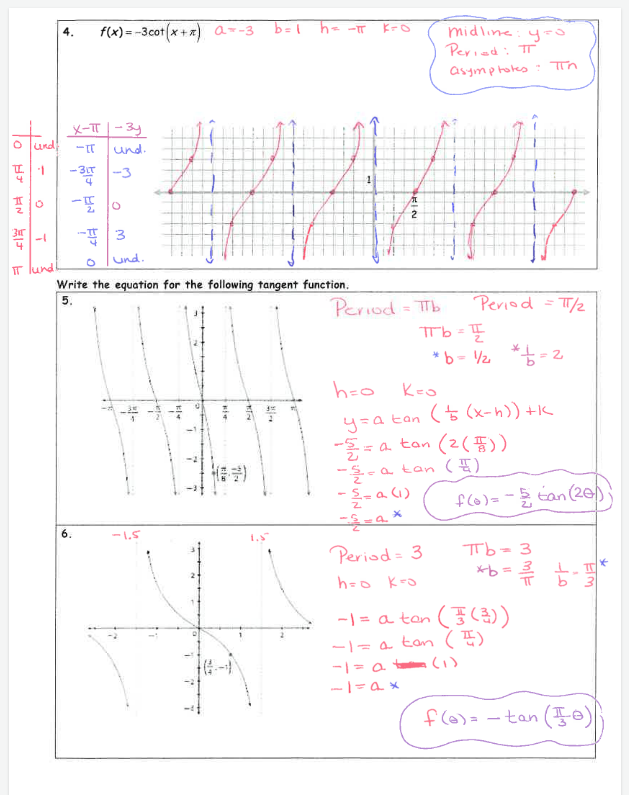 4. f(x) = -3cot(x + π) a=-3 b=1 h=-π K=0
midline: y=0
Period: π
asymptotes: πn
x-π | -3y
0 | und. -π | und.
π/4 | 1 -3π/4 | -3
π/2 | 0 -π/2 | 0
3π/4 | -1 -π/4 | 3
π | und 0 | und.
1
π/2
Write the equation for the following tangent function.
5.
Period = πb Period = π/2
πb = π/2
* b = 1/2 * 1/b = 2
h=0 K=0
y = a tan (1/b (x-h)) + K
-5/2 = a tan (2(π/8))
-5/2 = a tan (π/4)
-5/2 = a (1)
-5/2 = a *
f(θ) = -5/2 tan(2θ)
3
2
-π -3π/4 -π/2 -π/4 0 π/4 π/2 3π/4 π
-1
(π/8, -5/2)
-3
6.
-1.5 1.5
Period = 3 πb = 3
* b = 3/π 1/b = π/3 *
h=0 K=0
-1 = a tan (π/3 (3/4))
-1 = a tan (π/4)
-1 = a (1)
-1 = a *
f(θ) = - tan (π/3 θ)
3
2
1
-2 -1 0 1 2
-1
(3/4, -1)
-2
-3